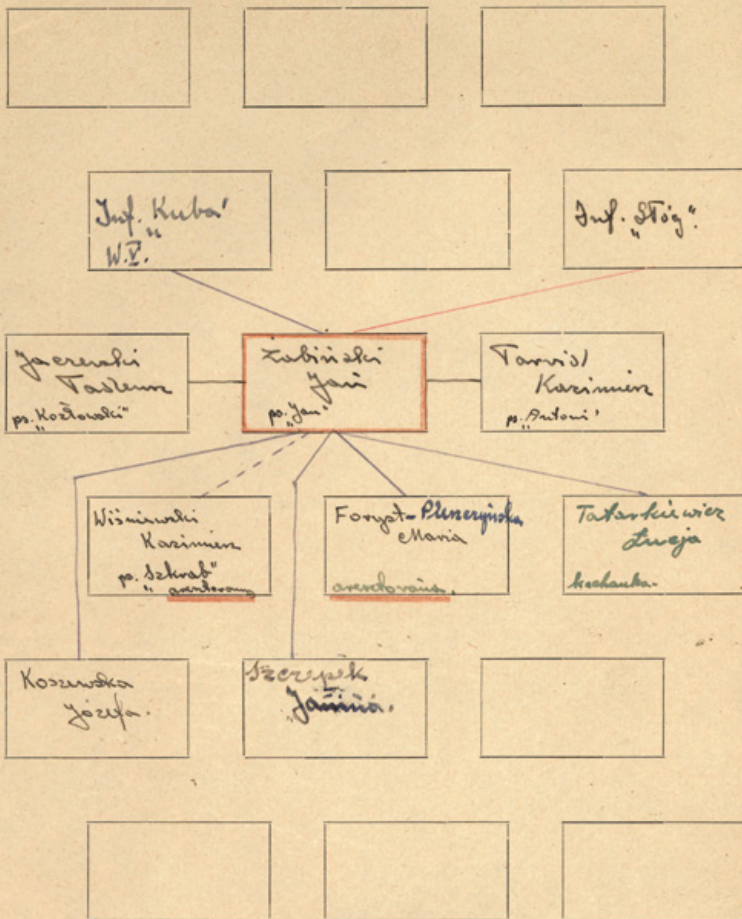 Inf. „Kuba"
W.V.
Inf. „Stóg".
Jaczewski
Tadeusz
ps. „Kozłowski"
Żabiński
Jan
ps. „Jan"
Tarvid
Kazimierz
ps. „Antoni"
Wiśniewski
Kazimierz
ps. „Szkrab"
aresztowany
Foryst-Plenczyńska
Maria
aresztowana.
Tatarkiewicz
Łucja
kochanka.
Koszewska
Józefa.
Szczepek
Janina.